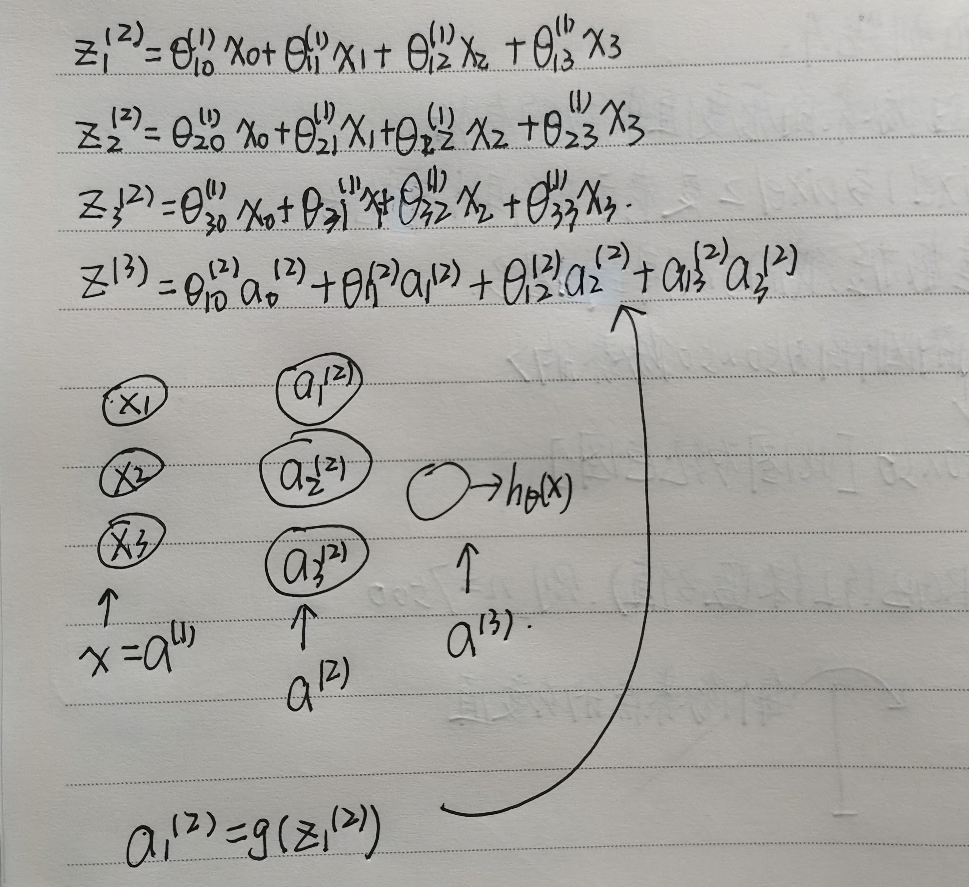 z₁⁽²⁾=θ₁₀⁽¹⁾x₀+θ₁₁⁽¹⁾x₁+θ₁₂⁽¹⁾x₂+θ₁₃⁽¹⁾x₃
z₂⁽²⁾=θ₂₀⁽¹⁾x₀+θ₂₁⁽¹⁾x₁+θ₂₂⁽¹⁾x₂+θ₂₃⁽¹⁾x₃
z₃⁽²⁾=θ₃₀⁽¹⁾x₀+θ₃₁⁽¹⁾x₁+θ₃₂⁽¹⁾x₂+θ₃₃⁽¹⁾x₃.
z⁽³⁾=θ₁₀⁽²⁾a₀⁽²⁾+θ₁₁⁽²⁾a₁⁽²⁾+θ₁₂⁽²⁾a₂⁽²⁾+a₁₃⁽²⁾a₃⁽²⁾
x₁ a₁⁽²⁾
x₂ a₂⁽²⁾ →h_θ(x)
x₃ a₃⁽²⁾
↑ ↑ ↑
x=a⁽¹⁾ a⁽²⁾ a⁽³⁾.
a₁⁽²⁾=g(z₁⁽²⁾)